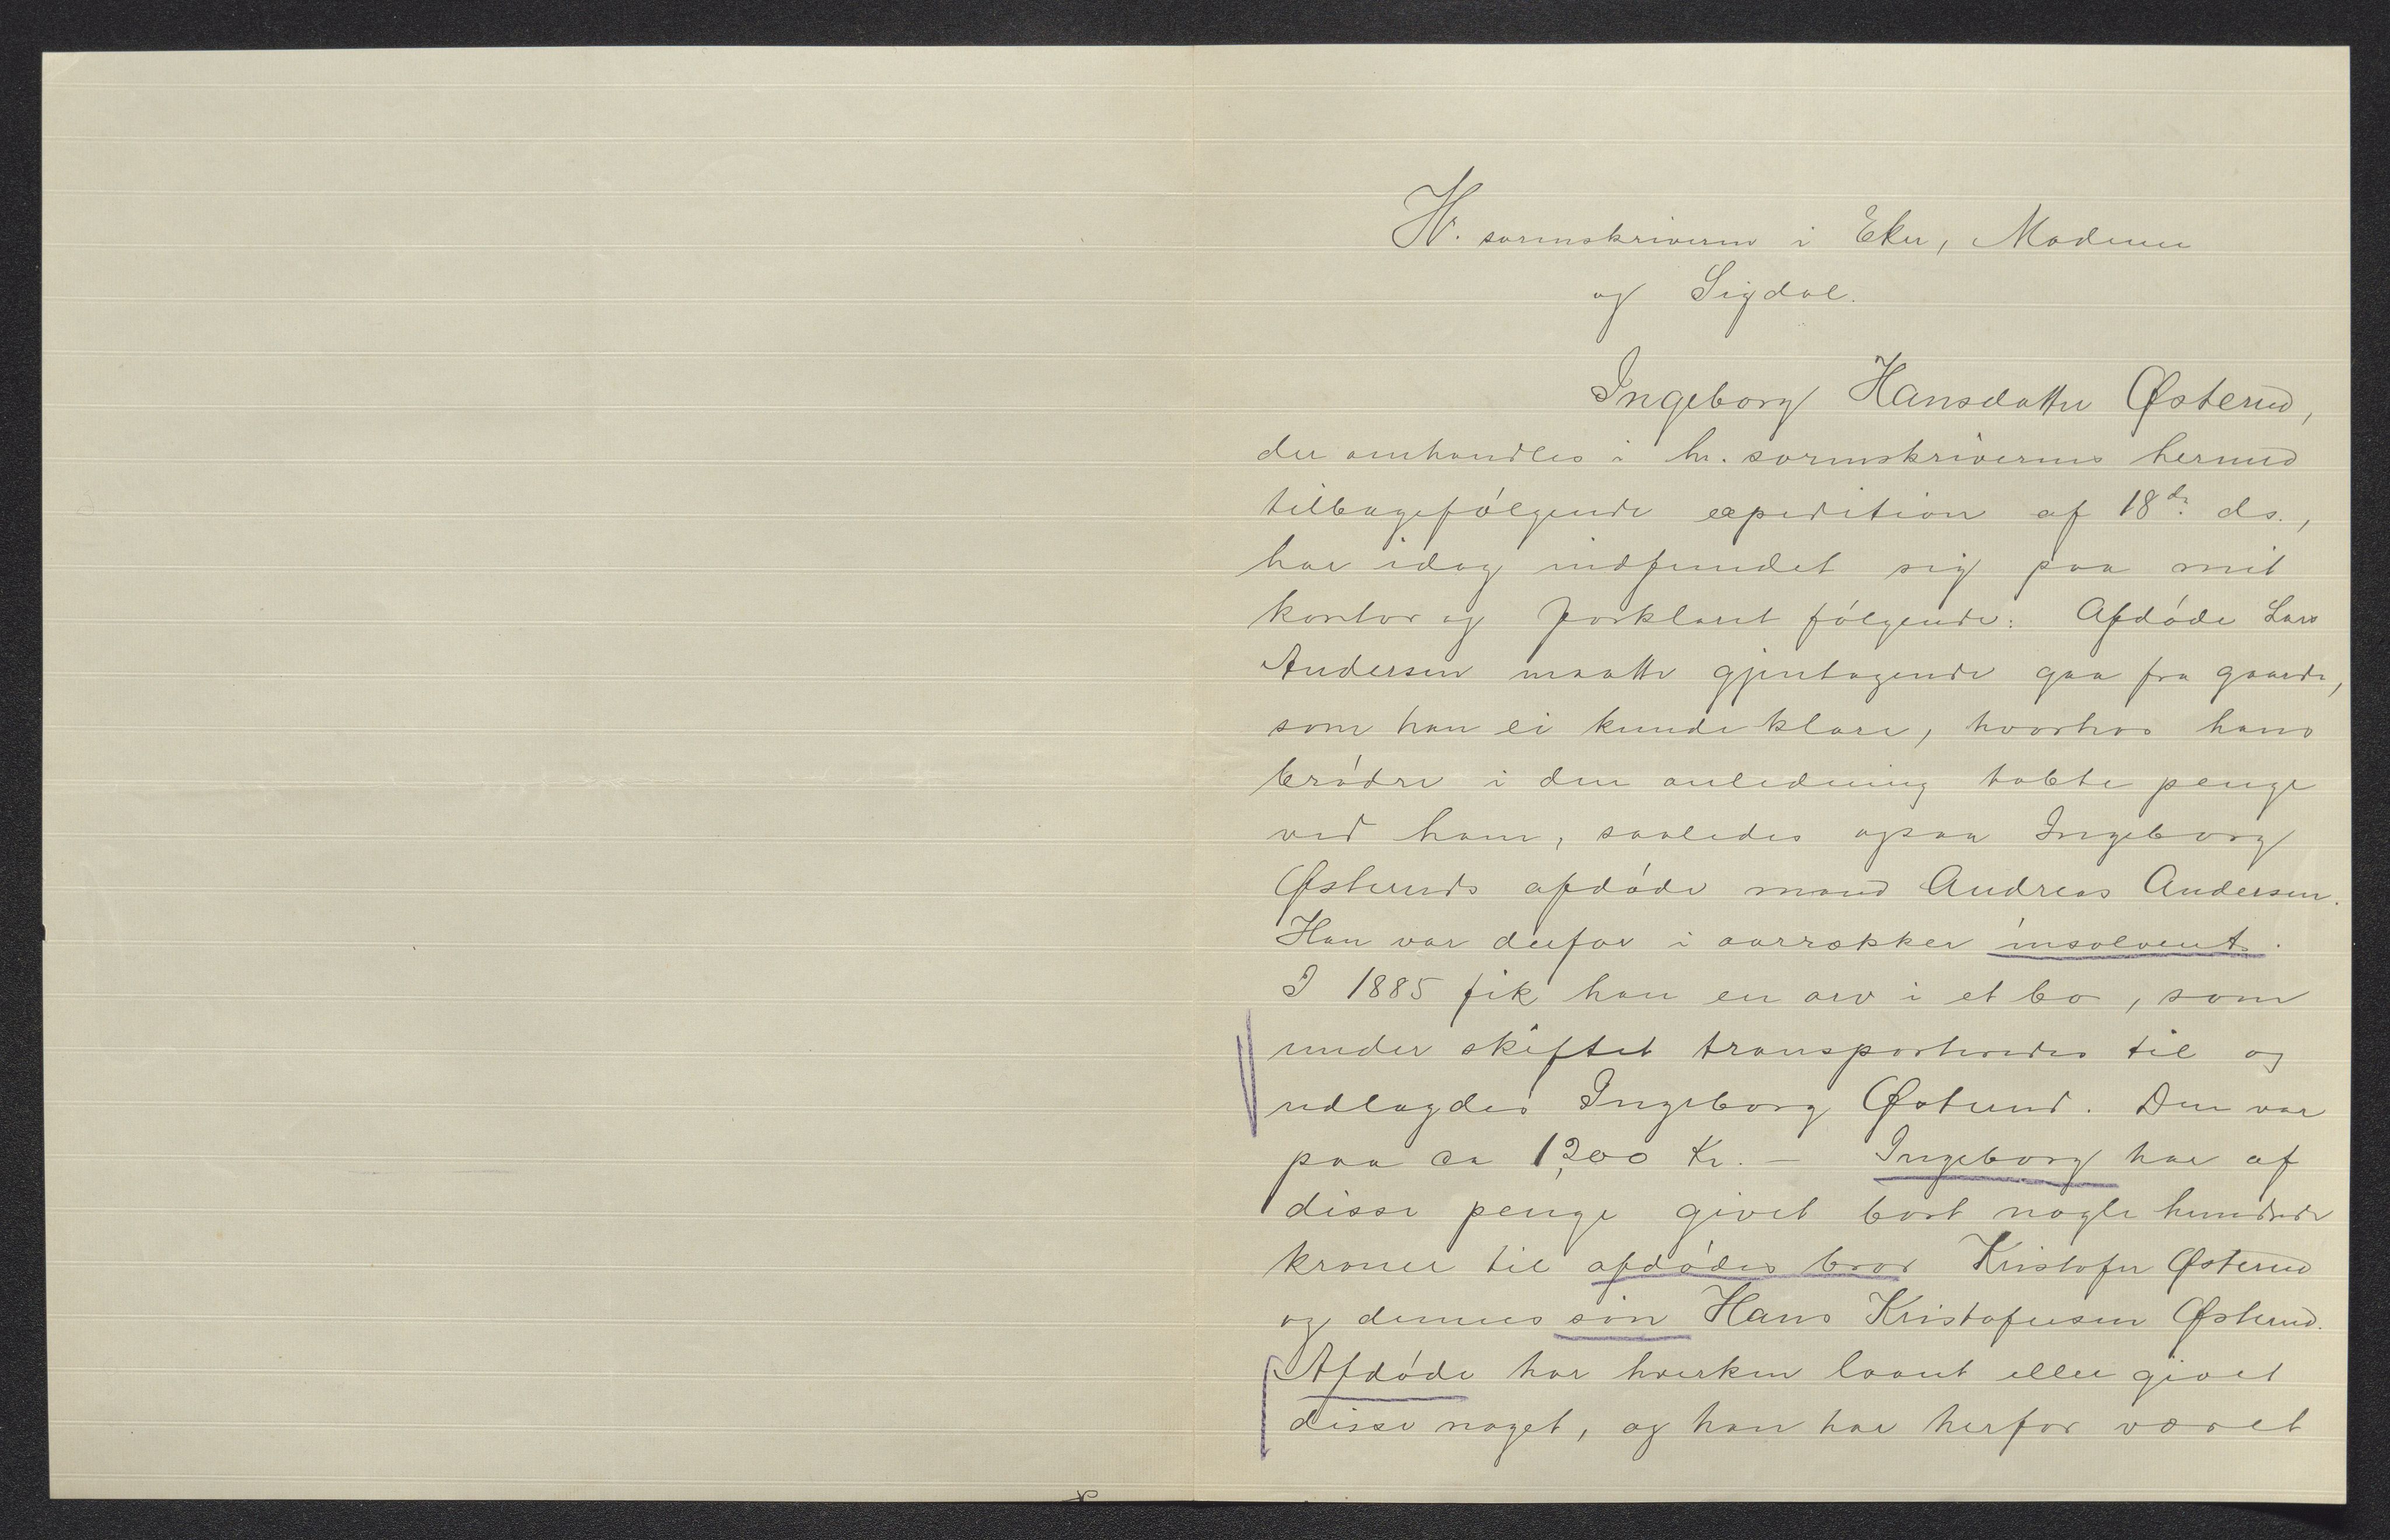 Hr. sorenskriveren i Eker, Modum
og Sigdal.
Ingeborg Hansdatter Østerud,
der omhandles i hr. sorenskriverens hermed
tilbagefølgende expedition af 18de ds.,
har idag indfundet sig paa mit
kontor og forklaret følgende: Afdøde Lars
Andersen maatte gjentagende gaa fra gaarde,
som han ei kunde klare, hvorhos hans
brødre i den anledning tabte penge
ved ham, saaledes ogsaa Ingeborg
Østeruds afdøde mand Andreas Andersen.
Han var derfor i aarrækker insolvent.
I 1885 fik han en arv i et bo, som
under skiftet transporteredes til og
udlagdes Ingeborg Østerud. Den var
paa ca 1,200 Kr. – Ingeborg har af
disse penge givet bort nogle hundrede
kroner til afdødes bror Kristofer Østerud
og dennes søn Hans Kristofersen Østerud.
Afdøde har hverken laant eller givet
disse noget, og han har herfor været